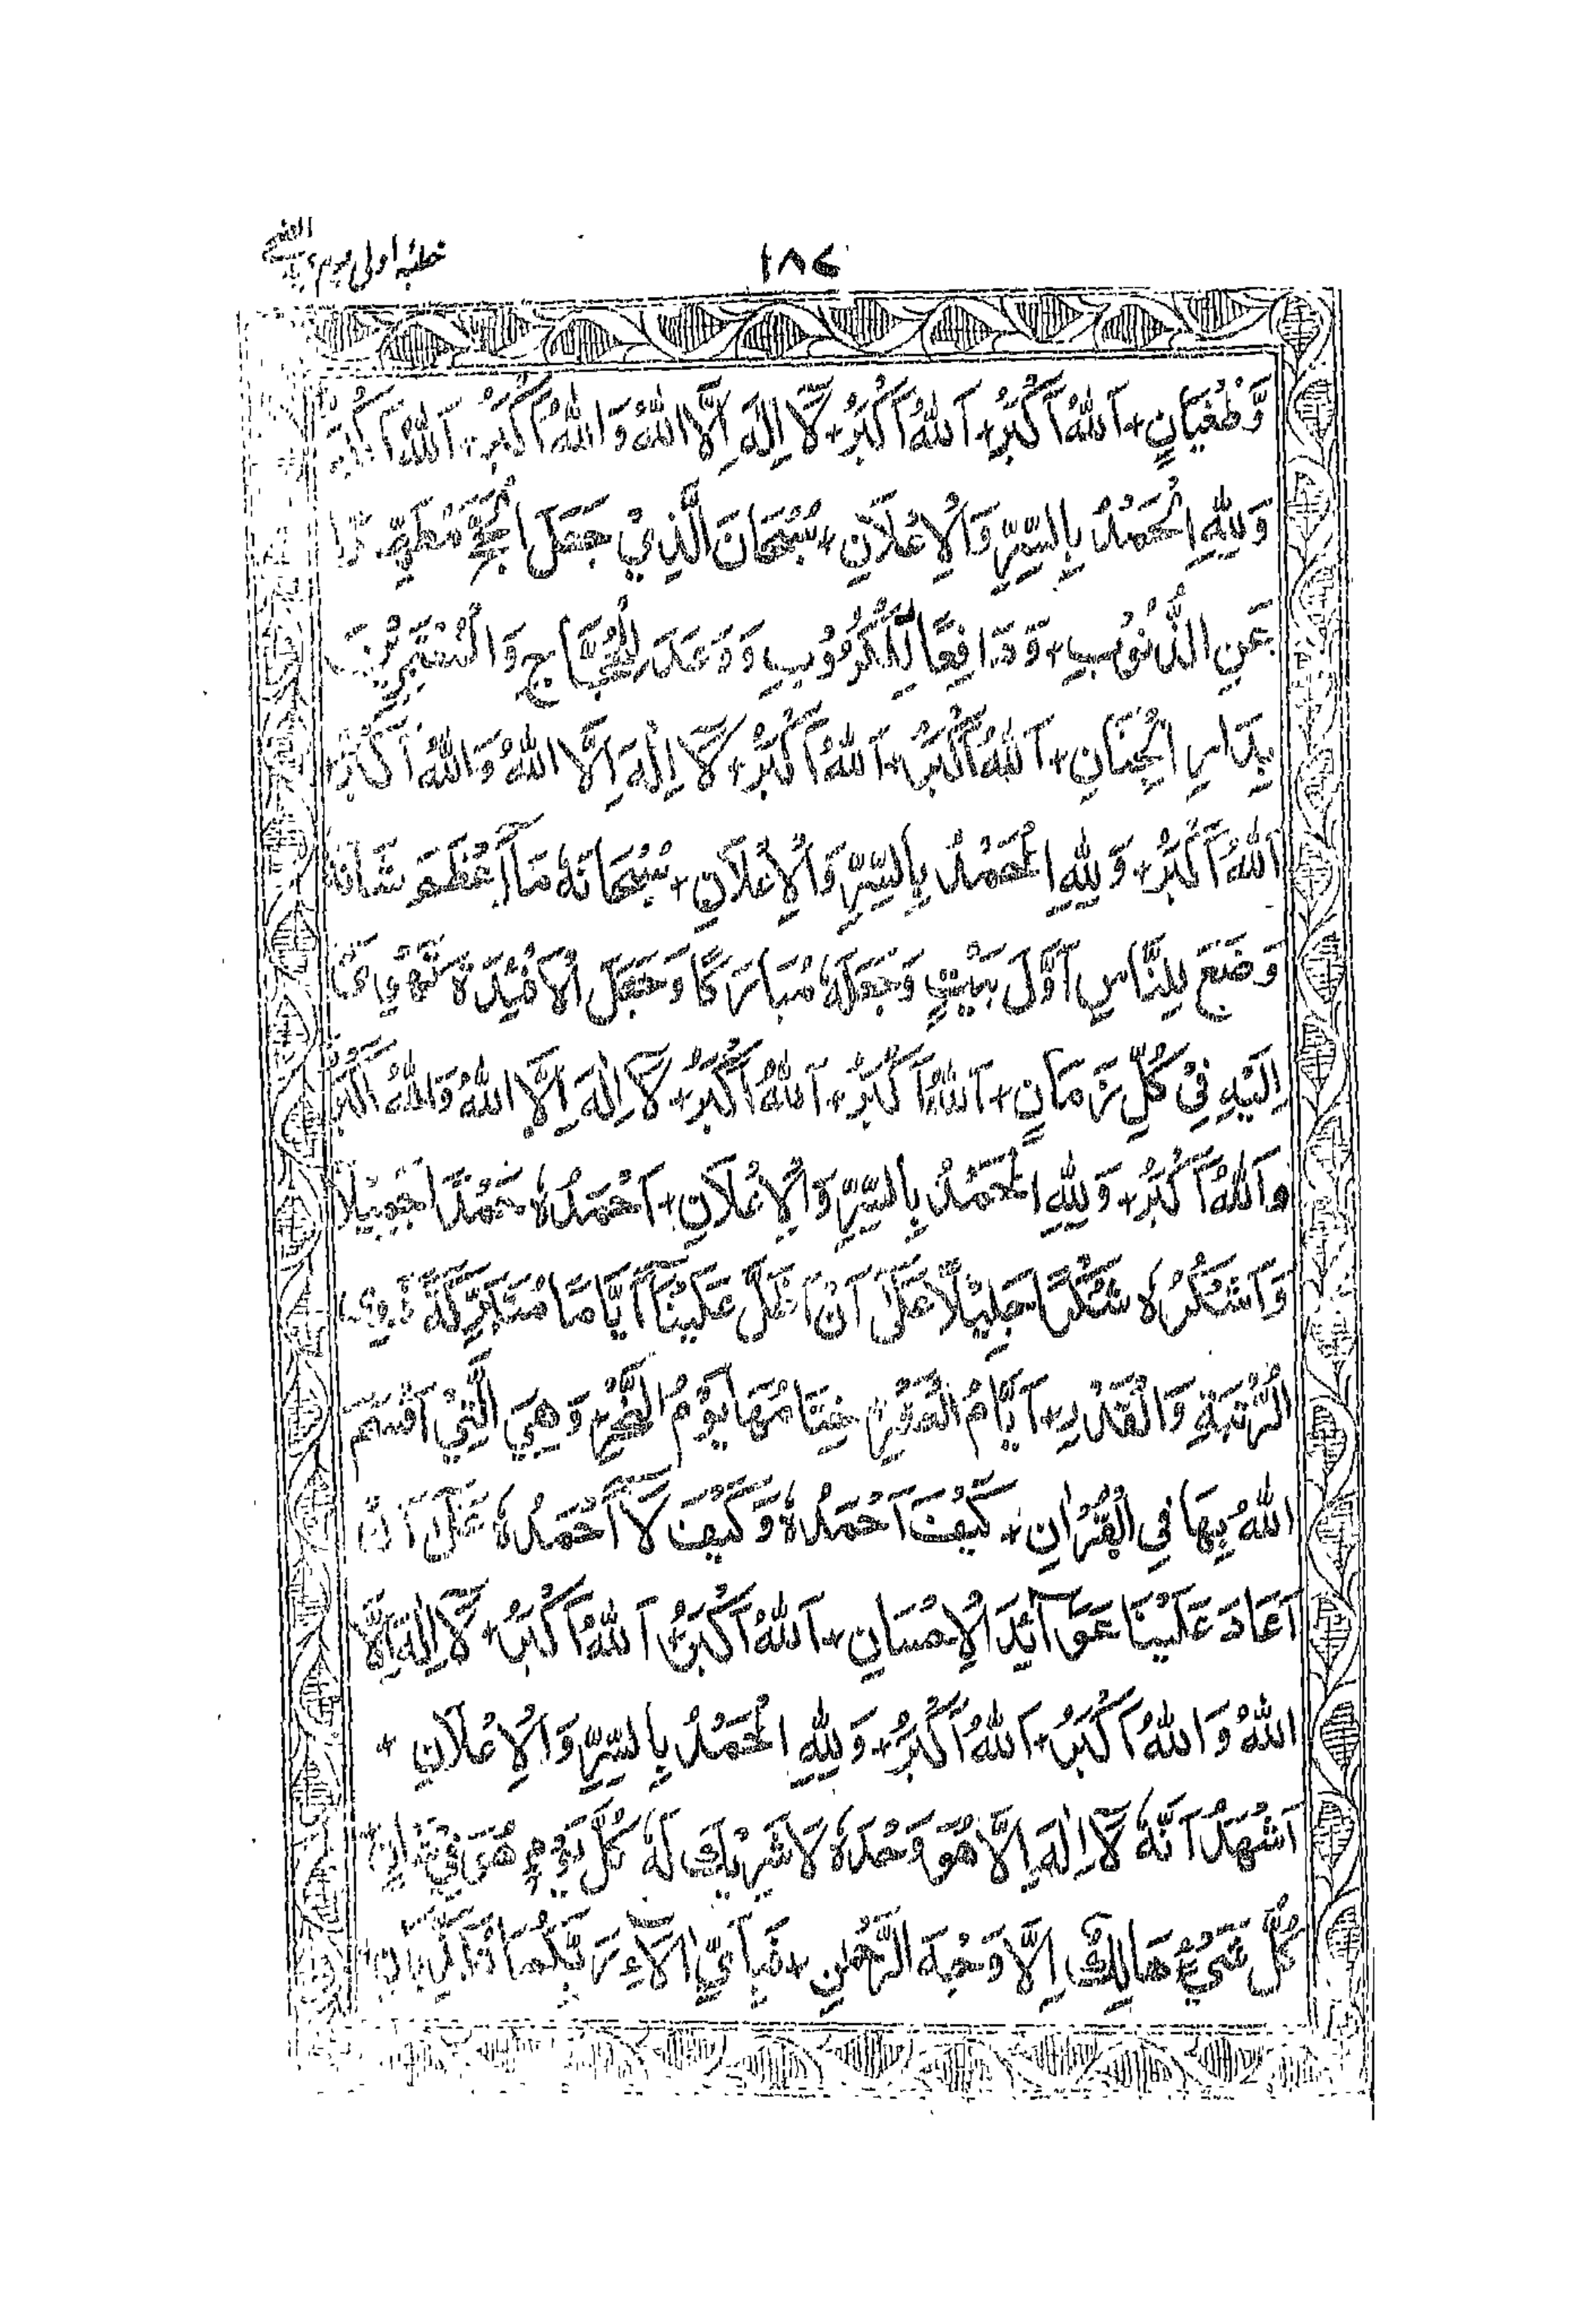 خطبۂ اولی یوم الاضحے
۱۸۷
وَّطُغْيَانٍ + اَللّٰهُ اَكْبَرُ + اَللّٰهُ اَكْبَرُ + لَآ اِلٰهَ اِلَّا اللّٰهُ وَاللّٰهُ اَكْبَرُ + اَللّٰهُ اَكْبَرُ
وَلِلّٰهِ الْحَمْدُ بِالسِّرِّ وَالْاِعْلَانِ + سُبْحَانَ الَّذِيْ جَعَلَ الْحَجَّ مُطَهِّرًا
عَنِ الذُّنُوْبِ + وَدَافِعًا لِّلْكُرُوْبِ وَوَعَدَ لِلْحُجَّاجِ وَالْمُعْتَمِرِيْنَ
بِدَارِ الْجِنَانِ + اَللّٰهُ اَكْبَرُ + اَللّٰهُ اَكْبَرُ + لَآ اِلٰهَ اِلَّا اللّٰهُ وَاللّٰهُ اَكْبَرُ
اَللّٰهُ اَكْبَرُ + وَلِلّٰهِ الْحَمْدُ بِالسِّرِّ وَالْاِعْلَانِ + سُبْحَانَهٗ مَا اَعْظَمَ شَانَهٗ
وَضَعَ لِلنَّاسِ اَوَّلَ بَيْتٍ وَجَعَلَهٗ مُبَارَكًا وَجَعَلَ الْاَفْئِدَةَ تَهْوِيْ
اِلَيْهِ فِيْ كُلِّ زَمَانٍ + اَللّٰهُ اَكْبَرُ + اَللّٰهُ اَكْبَرُ + لَآ اِلٰهَ اِلَّا اللّٰهُ وَاللّٰهُ اَكْبَرُ
وَاَللّٰهُ اَكْبَرُ + وَلِلّٰهِ الْحَمْدُ بِالسِّرِّ وَالْاِعْلَانِ + اَحْمَدُهٗ حَمْدًا جَمِيْلًا
وَاَشْكُرُهٗ شُكْرًا جَلِيْلًا عَلٰى اَنْ اَظَلَّ عَلَيْنَا اَيَّامًا مُتَبَرِّكَةً ذَوِي
الرُّتْبَةِ وَالْقَدْرِ + اَيَّامُ الْعَشْرِ + خِتَامُهَا يَوْمُ النَّحْرِ + وَهِيَ الَّتِيْ اَقْسَمَ
اللّٰهُ بِهَا فِي الْقُرْاٰنِ + كَيْفَ اَحْمَدُهٗ وَكَيْفَ لَا اَحْمَدُهٗ عَلٰى اَنْ
اَعَادَ عَلَيْنَا عَوَآئِدَ الْاِحْسَانِ + اَللّٰهُ اَكْبَرُ + اَللّٰهُ اَكْبَرُ + لَآ اِلٰهَ اِلَّا
اللّٰهُ وَاللّٰهُ اَكْبَرُ + اَللّٰهُ اَكْبَرُ + وَلِلّٰهِ الْحَمْدُ بِالسِّرِّ وَالْاِعْلَانِ +
اَشْهَدُ اَنَّهٗ لَآ اِلٰهَ اِلَّا هُوَ وَحْدَهٗ لَا شَرِيْكَ لَهٗ كُلَّ يَوْمٍ هُوَ فِيْ شَانٍ
كُلُّ شَيْءٍ هَالِكٌ اِلَّا وَجْهَ الرَّحْمٰنِ + فَبِاَيِّ اٰلَآءِ رَبِّكُمَا تُكَذِّبَانِ